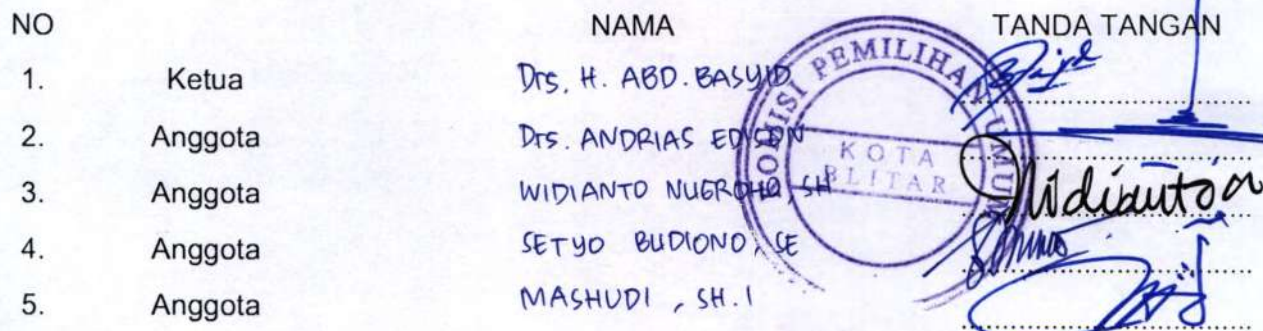 NO NAMA TANDA TANGAN
1. Ketua Drs. H. ABD. BASYID
2. Anggota Drs. ANDRIAS EDISON
3. Anggota WIDIANTO NUGROHO, SH
4. Anggota SETYO BUDIONO, SE
5. Anggota MASHUDI, SH.I
KOMISI PEMILIHAN UMUM
KOTA
BLITAR